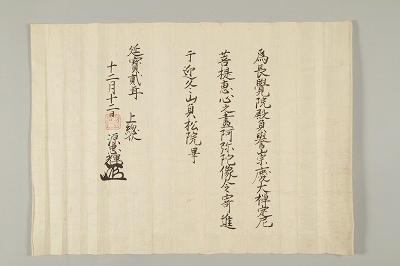 為長覺院殿貞譽崇慶大禅定尼
菩提惠心之畫阿弥陀像令寄進
于迎冬山貞松院畢
延寳貳年 上総介
十二月十二日 源忠輝